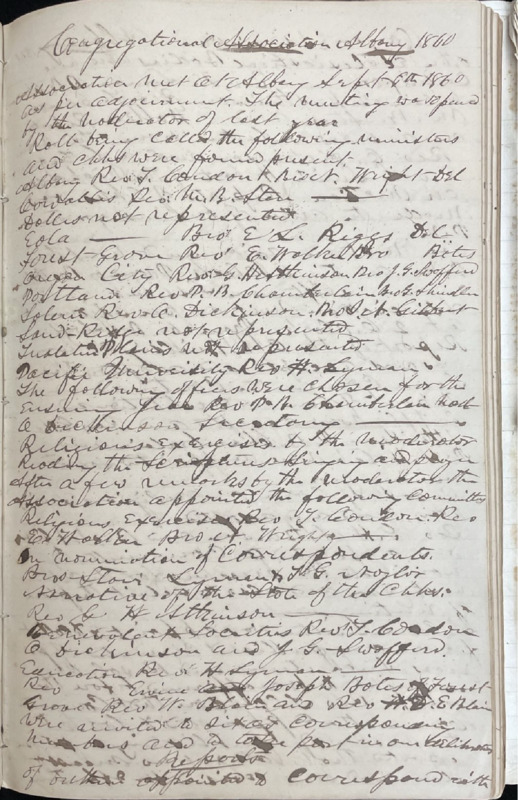 Congregational Association Albany 1860
Association met at Albany Sept 6th 1860
as per adjournment. The meeting was opened
by the moderator of last year
Roll being called the following ministers
and chhs were found present.
Albany Rev. T. Condon & Wright Del
Corvallis Rev. M. B. Starr
not represented
Eola Bro E L. Riggs Del
Forest Grove Rev. E. Walker Bro Bates
Oregon City Rev. G. H. Atkinson Bro J. G. Swafford
Portland Rev. P. B. Chamberlain
Salem Rev. O. Dickinson.
Sand Ridge not represented
Tualatin Plains not represented
Pacific University Rev H. Lyman
The following officers were chosen for the
ensuing year Rev P. B. Chamberlain mod
O Dickinson
Religious Exercises by the moderator
Reading the Scriptures singing and prayer
After a few remarks by the moderator the
Association appointed the following committees
Religious Exercises Rev T. Condon. Rev
E. Walker Bro Wright
On nomination of Correspondents.
Bros Starr Lyman & G. Naylor
Narrative of the State of the Chhs.
Rev G. H Atkinson
Benevolent Societies Rev T. Condon
O Dickinson and J G. Swafford.
Education Rev H Lyman
Rev Joseph Bates of Forest
Grove Rev and Rev E Blain
were invited to sit as corresponding
members and to take part in our
Report
of appointed to correspond with